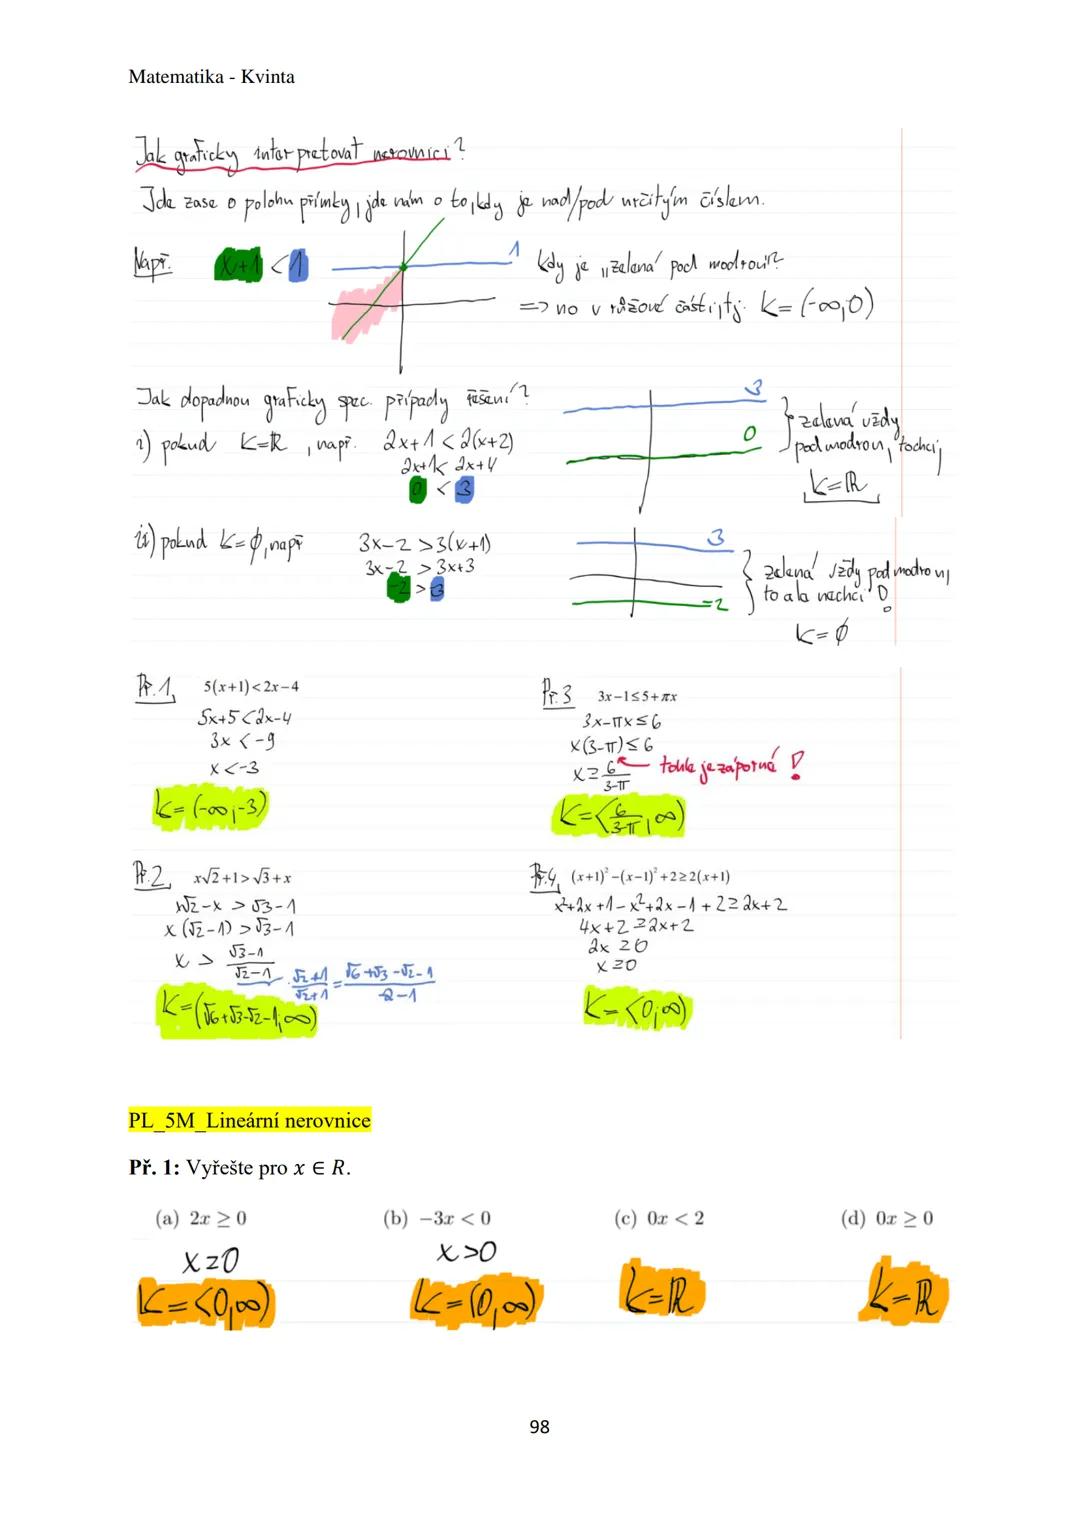 Matematika - Kvinta
Jak graficky interpretovat nerovnici?
Jde zase o polohu přímky, jde nám o to, kdy je nad/pod určitým číslem.
Např. x+1 < 1
1
Kdy je "zelená" pod modrou?
=> no v růžové části, tj. K=(-∞,0)
Jak dopadnou graficky spec. případy řešení?
i) pokud K=ℝ, např. 2x+1 < 2(x+2)
2x+1 < 2x+4
0 < 3
3
0
zelená vždy
pod modrou, to chci,
K=ℝ
ii) pokud K=∅, např
3x-2 > 3(x+1)
3x-2 > 3x+3
-2 > 3
3
-2
zelená vždy pod modrou,
to ale nechci!
K=∅
Př.1, 5(x+1)<2x-4
5x+5<2x-4
3x < -9
x < -3
K=(-∞;-3)
Př.3 3x-1≤5+πx
3x-πx≤6
x(3-π)≤6
x≥6/(3-π) tohle je záporné!
K=<6/(3-π), ∞)
Př.2, x√2+1>√3+x
x√2-x > √3-1
x(√2-1) > √3-1
x > (√3-1)/(√2-1) · (√2+1)/(√2+1) = (√6+√3-√2-1)/(2-1)
K=(√6+√3-√2-1;∞)
Př.4, (x+1)²-(x-1)²+2≥2(x+1)
x²+2x+1-x²+2x-1+2≥2x+2
4x+2≥2x+2
2x≥0
x≥0
K=<0,∞)
PL_5M_Lineární nerovnice
Př. 1: Vyřešte pro x ∈ R.
(a) 2x ≥ 0 (b) −3x < 0 (c) 0x < 2 (d) 0x ≥ 0
x≥0 x>0
K=<0,∞) K=(0,∞) K=ℝ K=ℝ
98